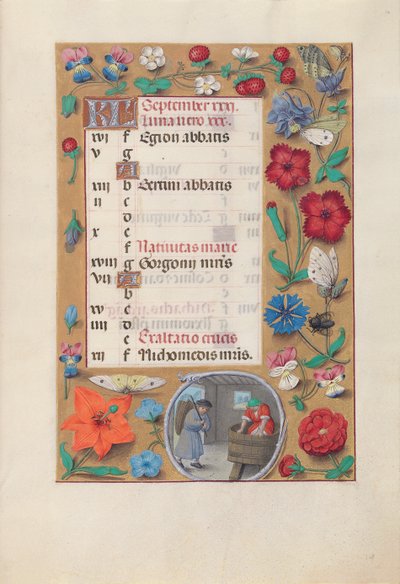 KL September xxx.
Luna vero xxx.
xvi f Egion abbatis
v g
A
viii b Bertini abbatis
ii c
d
x e
f Nativitas marie
xviii g Gorgonii mris
vii A
b
xv c
iiii d
e Exaltatio crucis
xii f Nichomedis mris.